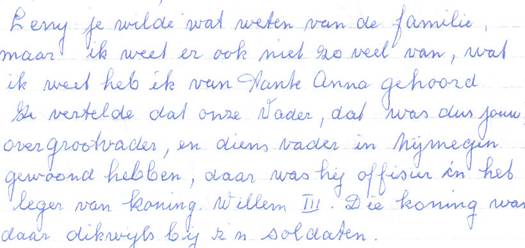 Lenny je wilde wat weten van de familie,
maar ik weet er ook niet zo veel van, wat
ik weet heb ik van Tante Anna gehoord
Ze vertelde dat onze Vader, dat was dus jouw
overgrootvader, en diens vader in Nijmegen
gewoond hebben, daar was hij offisier in het
leger van koning Willem III. Die koning was
daar dikwyls bij z'n soldaten.